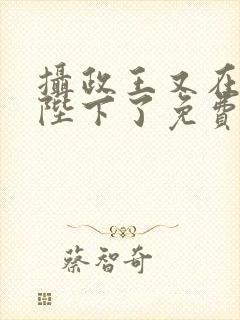 攝政王又在
陛下了免費
蔡智奇